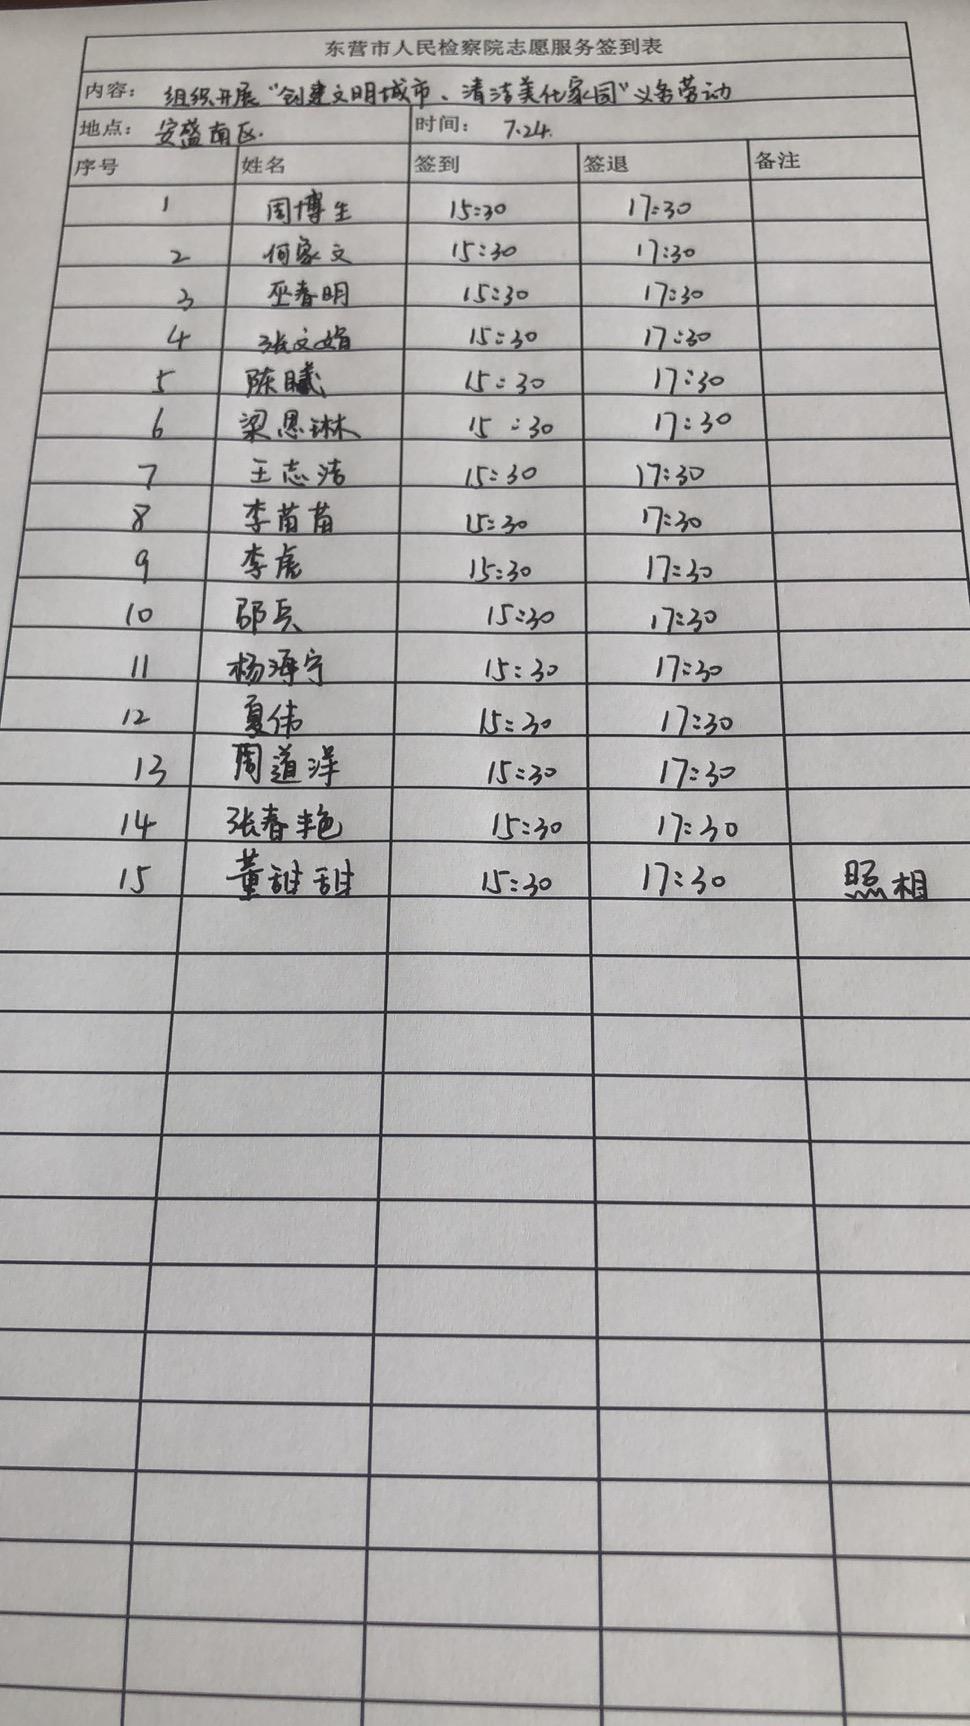 东营市人民检察院志愿服务签到表
内容： 组织开展“创建文明城市、清洁美化家园”义务劳动
地点： 安盛南区. 时间： 7.24.
序号 姓名 签到 签退 备注
1 周博生 15:30 17:30
2 何家文 15:30 17:30
3 巫春明 15:30 17:30
4 张文娟 15:30 17:30
5 陈曦 15:30 17:30
6 梁恩琳 15:30 17:30
7 王志洁 15:30 17:30
8 李苗苗 15:30 17:30
9 李虎 15:30 17:30
10 邵兵 15:30 17:30
11 杨海宁 15:30 17:30
12 夏伟 15:30 17:30
13 周道洋 15:30 17:30
14 张春艳 15:30 17:30
15 董甜甜 15:30 17:30 照相